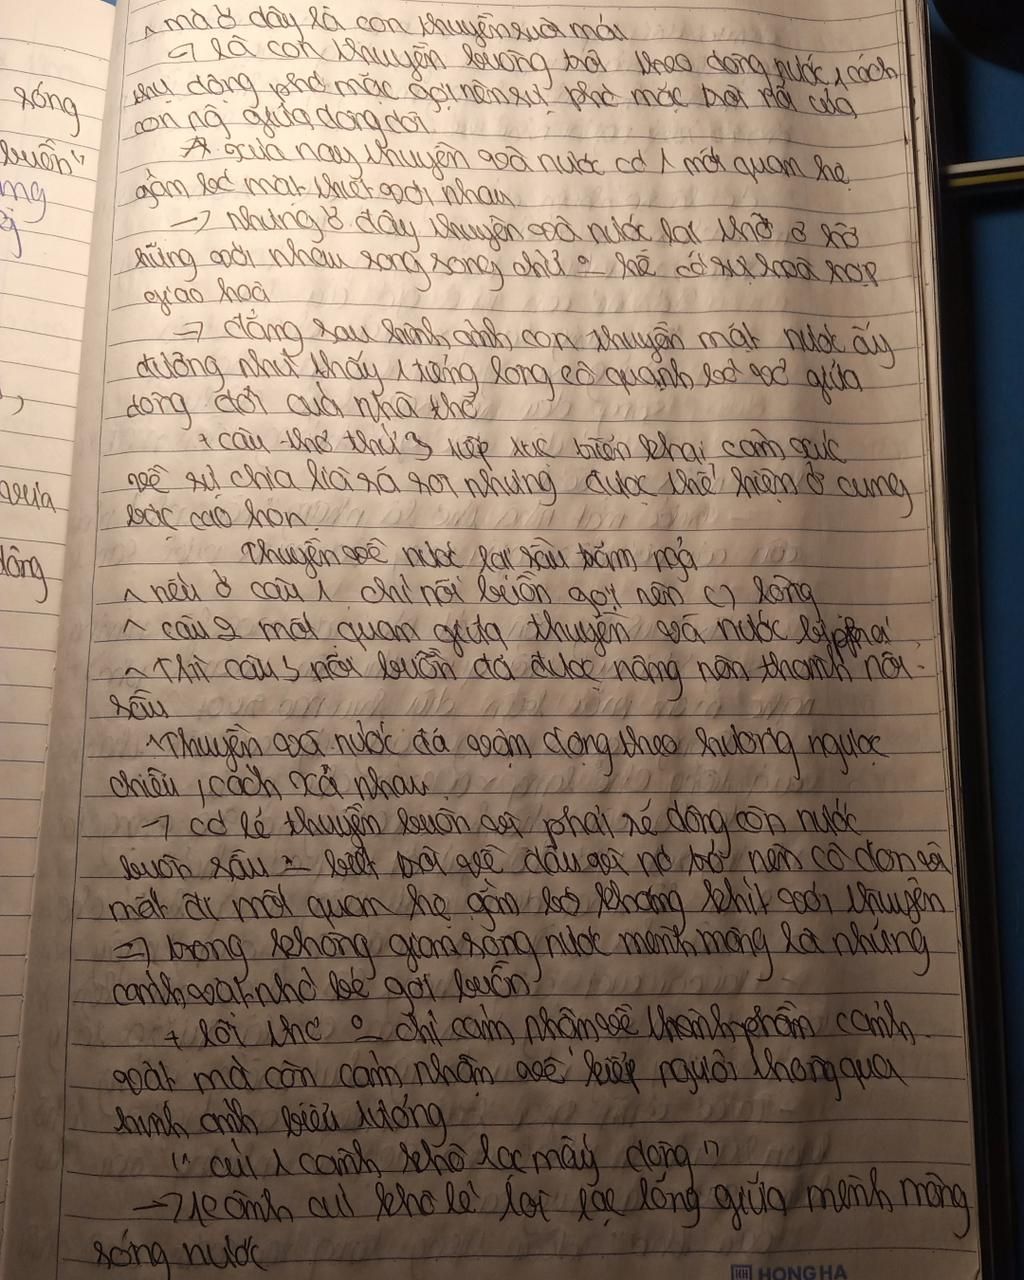 sóng
buồn"
ng
,
xưa
dòng
^ mà ở đây là con thuyền xuôi mái
là con thuyền buông trôi theo dòng nước, cách
thụ động phó mặc gợi nên sự phó mặc trôi nổi của
con ng giữa dòng đời
xưa nay thuyền và nước có 1 mối quan hệ
gắn bó mật thiết với nhau
→ nhưng ở đây thuyền và nước lại thờ ơ hờ
hững với nhau song song chứ o hề có sự hoà hợp
giao hoà
→ đằng sau hình ảnh con thuyền mặt nước ấy
dường như thấy 1 tiếng lòng cô quạnh bơ vơ giữa
dòng đời của nhà thơ
+ câu thơ thứ 3 tiếp tục triển khai cảm xúc
về sự chia lìa xá xôi nhưng được thể hiện ở cung
bậc cao hơn
thuyền về nước lại sầu trăm ngả
^ nếu ở câu 1 chỉ nỗi buồn gợi nên lòng
^ câu 2 mối quan giữa thuyền và nước bị
^ Thì câu 3 nỗi buồn đã được nâng nên thành nỗi
sầu
^ Thuyền và nước đã vận động theo hướng ngược
chiều, cách xả nhau
→ có lẽ thuyền buồn vì phải xế dòng còn nước
buồn sầu o biết trôi về đâu vì nó trở nên cô đơn và
mất đi mối quan hệ gắn bó khăng khít với thuyền
=> trong không gian sông nước mênh mông là những
cảnh vật nhỏ bé gợi buồn
+ lời thơ o chỉ cảm nhận về thành phần cảnh
vật mà còn cảm nhận về kiếp người thông qua
hình ảnh biểu tượng
" củi 1 cành khô lạc mấy dòng "
→ 1 cành củi khô lẻ loi lạc lõng giữa mênh mông
sóng nước
HONG HA